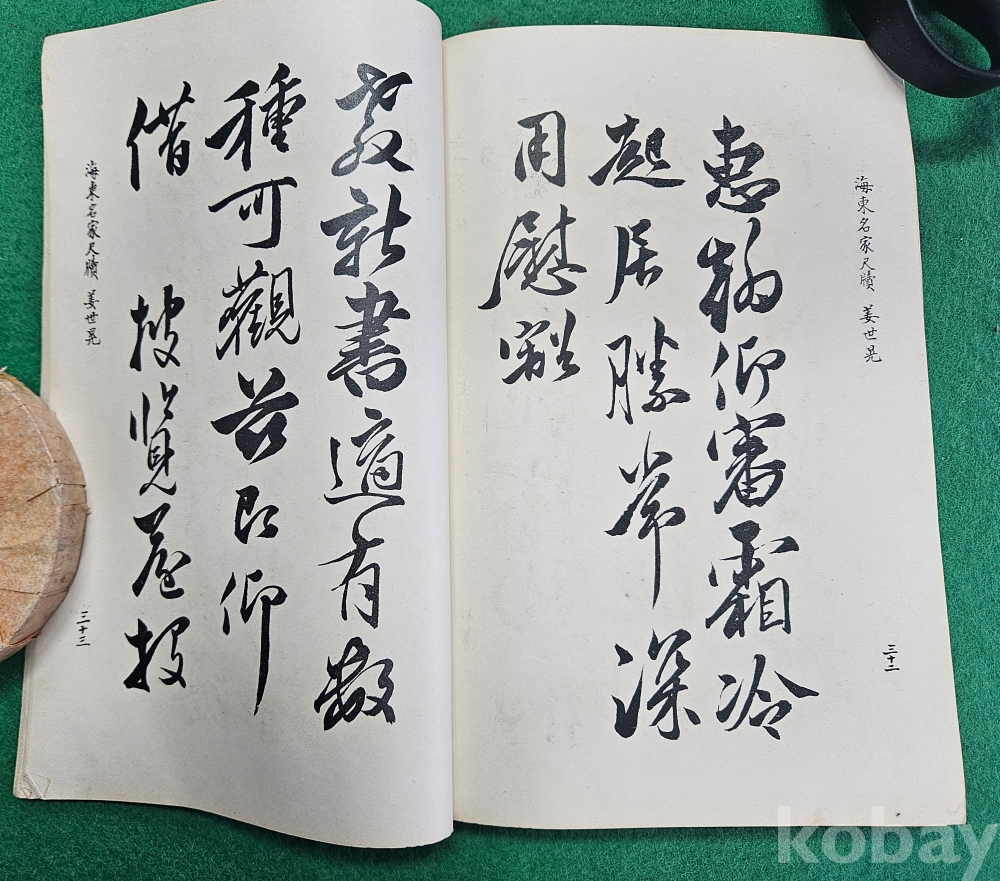 海東名家尺牘 姜世晃
三十二
惠翰仰審霜冷
起居勝常深
用慰豁
教新書適有數
種可觀玆即仰
借 披覽后投
海東名家尺牘 姜世晃
三十三
kobay